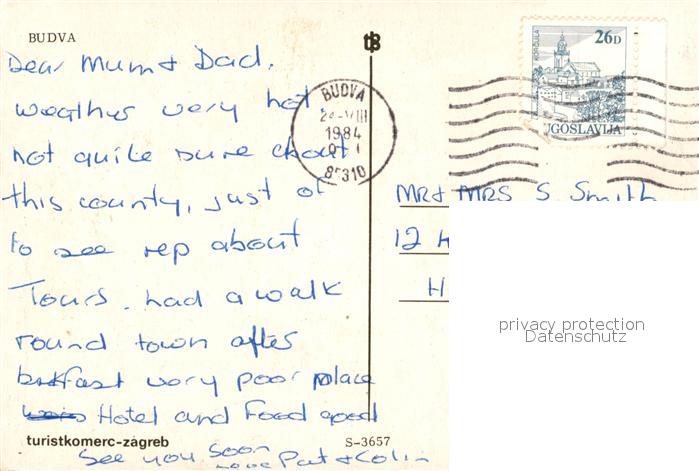 BUDVA
Dear Mum & Dad.
weather very hot.
not quite sure about
this county, just of
to see rep about
Tours. had a walk
round town after
brekfast very poor place
Hotel and Food good
turistkomerc-zagreb
S-3657
See you soon
love Pat & Colin
BUDVA
VIII
1984
85310
26D
JGOSLAVIJA
Mr & MRS S Smith
12 H
H
privacy protection
Datenschutz